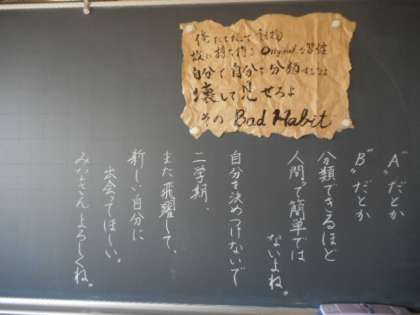 俺たちだって動物
故に持ち得る Originalな習性
自分で自分を分類するなよ
壊して見せろよ
その Bad Habit
"A"だとか
"B"だとか
分類できるほど
人間って簡単では
ないよね。
自分を決めつけないで
二学期、
また飛躍して、
新しい自分に
出会ってほしい。
みなさんよろしくね。